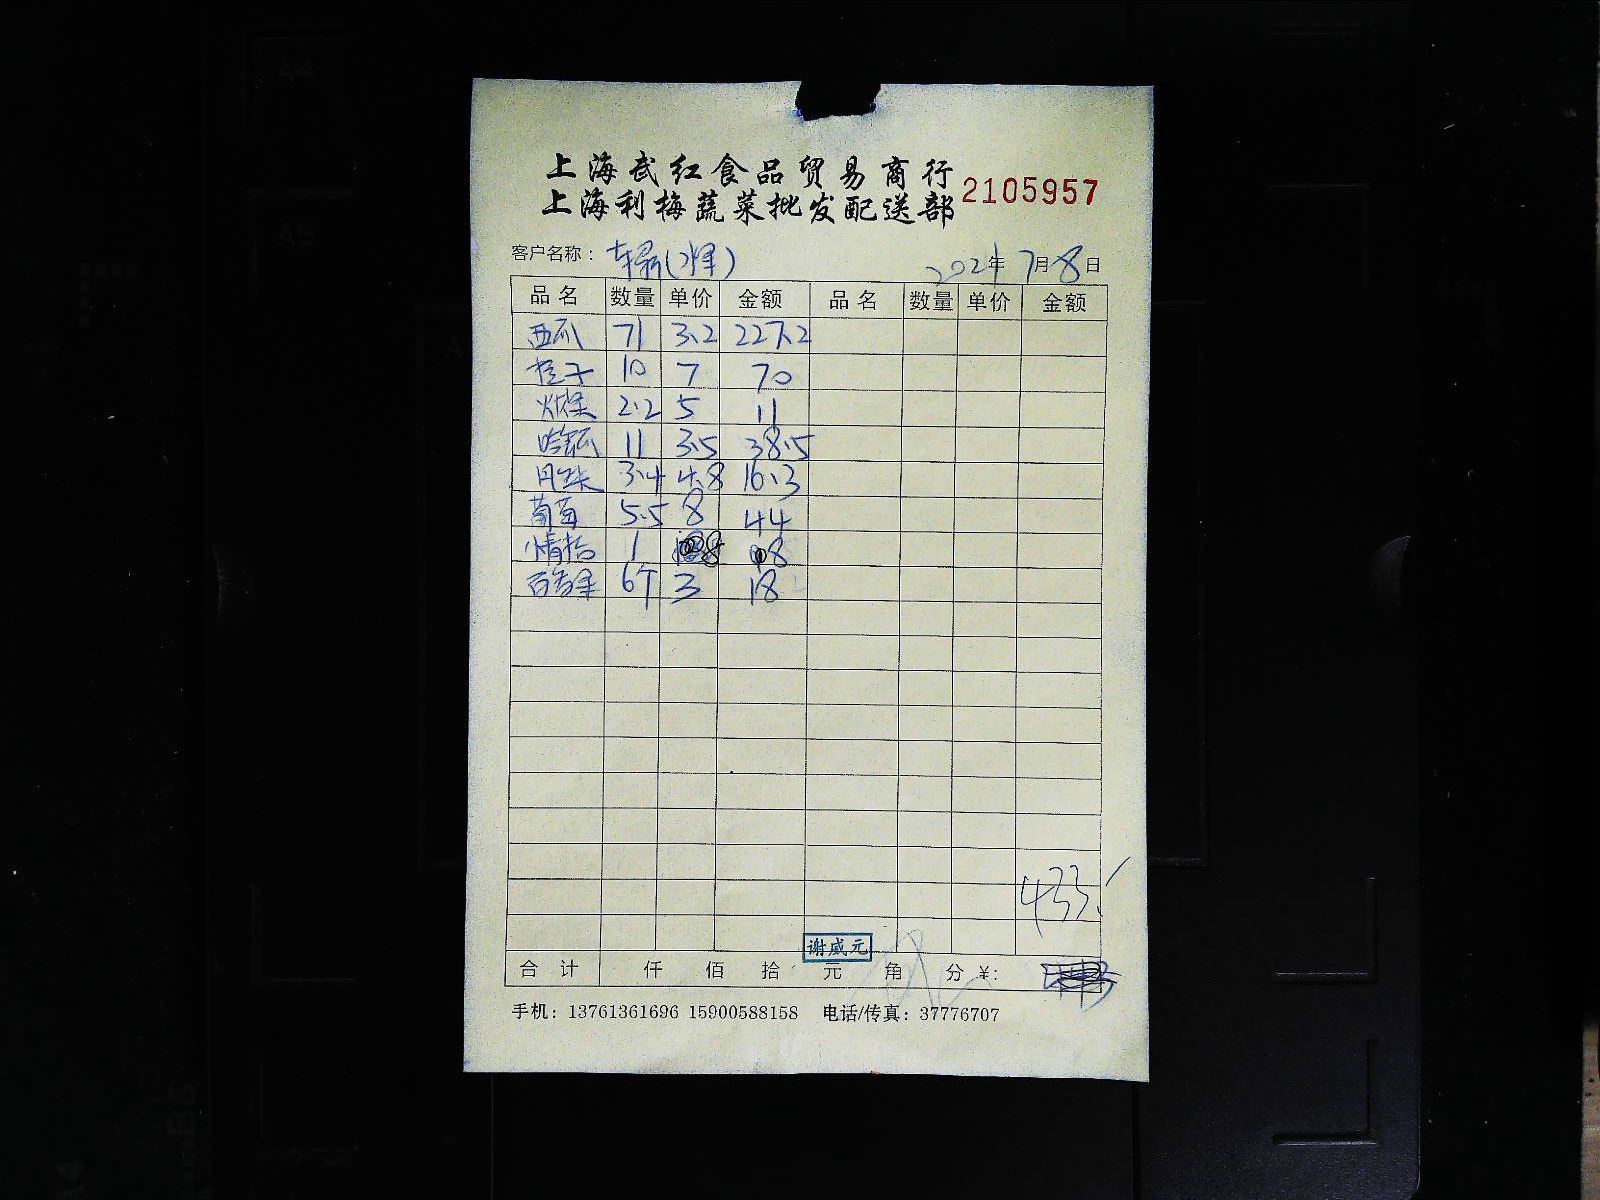 上海武红食品贸易商行
上海利梅蔬菜批发配送部 2105957
客户名称： 2021年7月8日
品名 数量 单价 金额 品名 数量 单价 金额
西瓜 71 3.2 227.2
橙子 10 7 70
2.2 5 11
哈密瓜 11 3.5 38.5
3.4 4.8 16.3
葡萄 5.5 8 44
1 8 8
百香果 6个 3 18
433.
谢威元
合计 仟 佰 拾 元 角 分 ¥:
手机：13761361696 15900588158 电话/传真：37776707